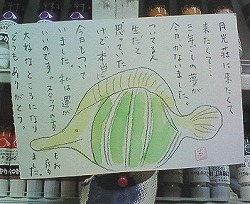 月光荘に来たくて
来たくて
三年ごしの夢が
今日かないました。
いている人
生だと
思っていた
けど本当に
今日もついて
いました。私は運が
いいのです。スタッフの方
すてきなところになり
どうもありがとう。
ました。